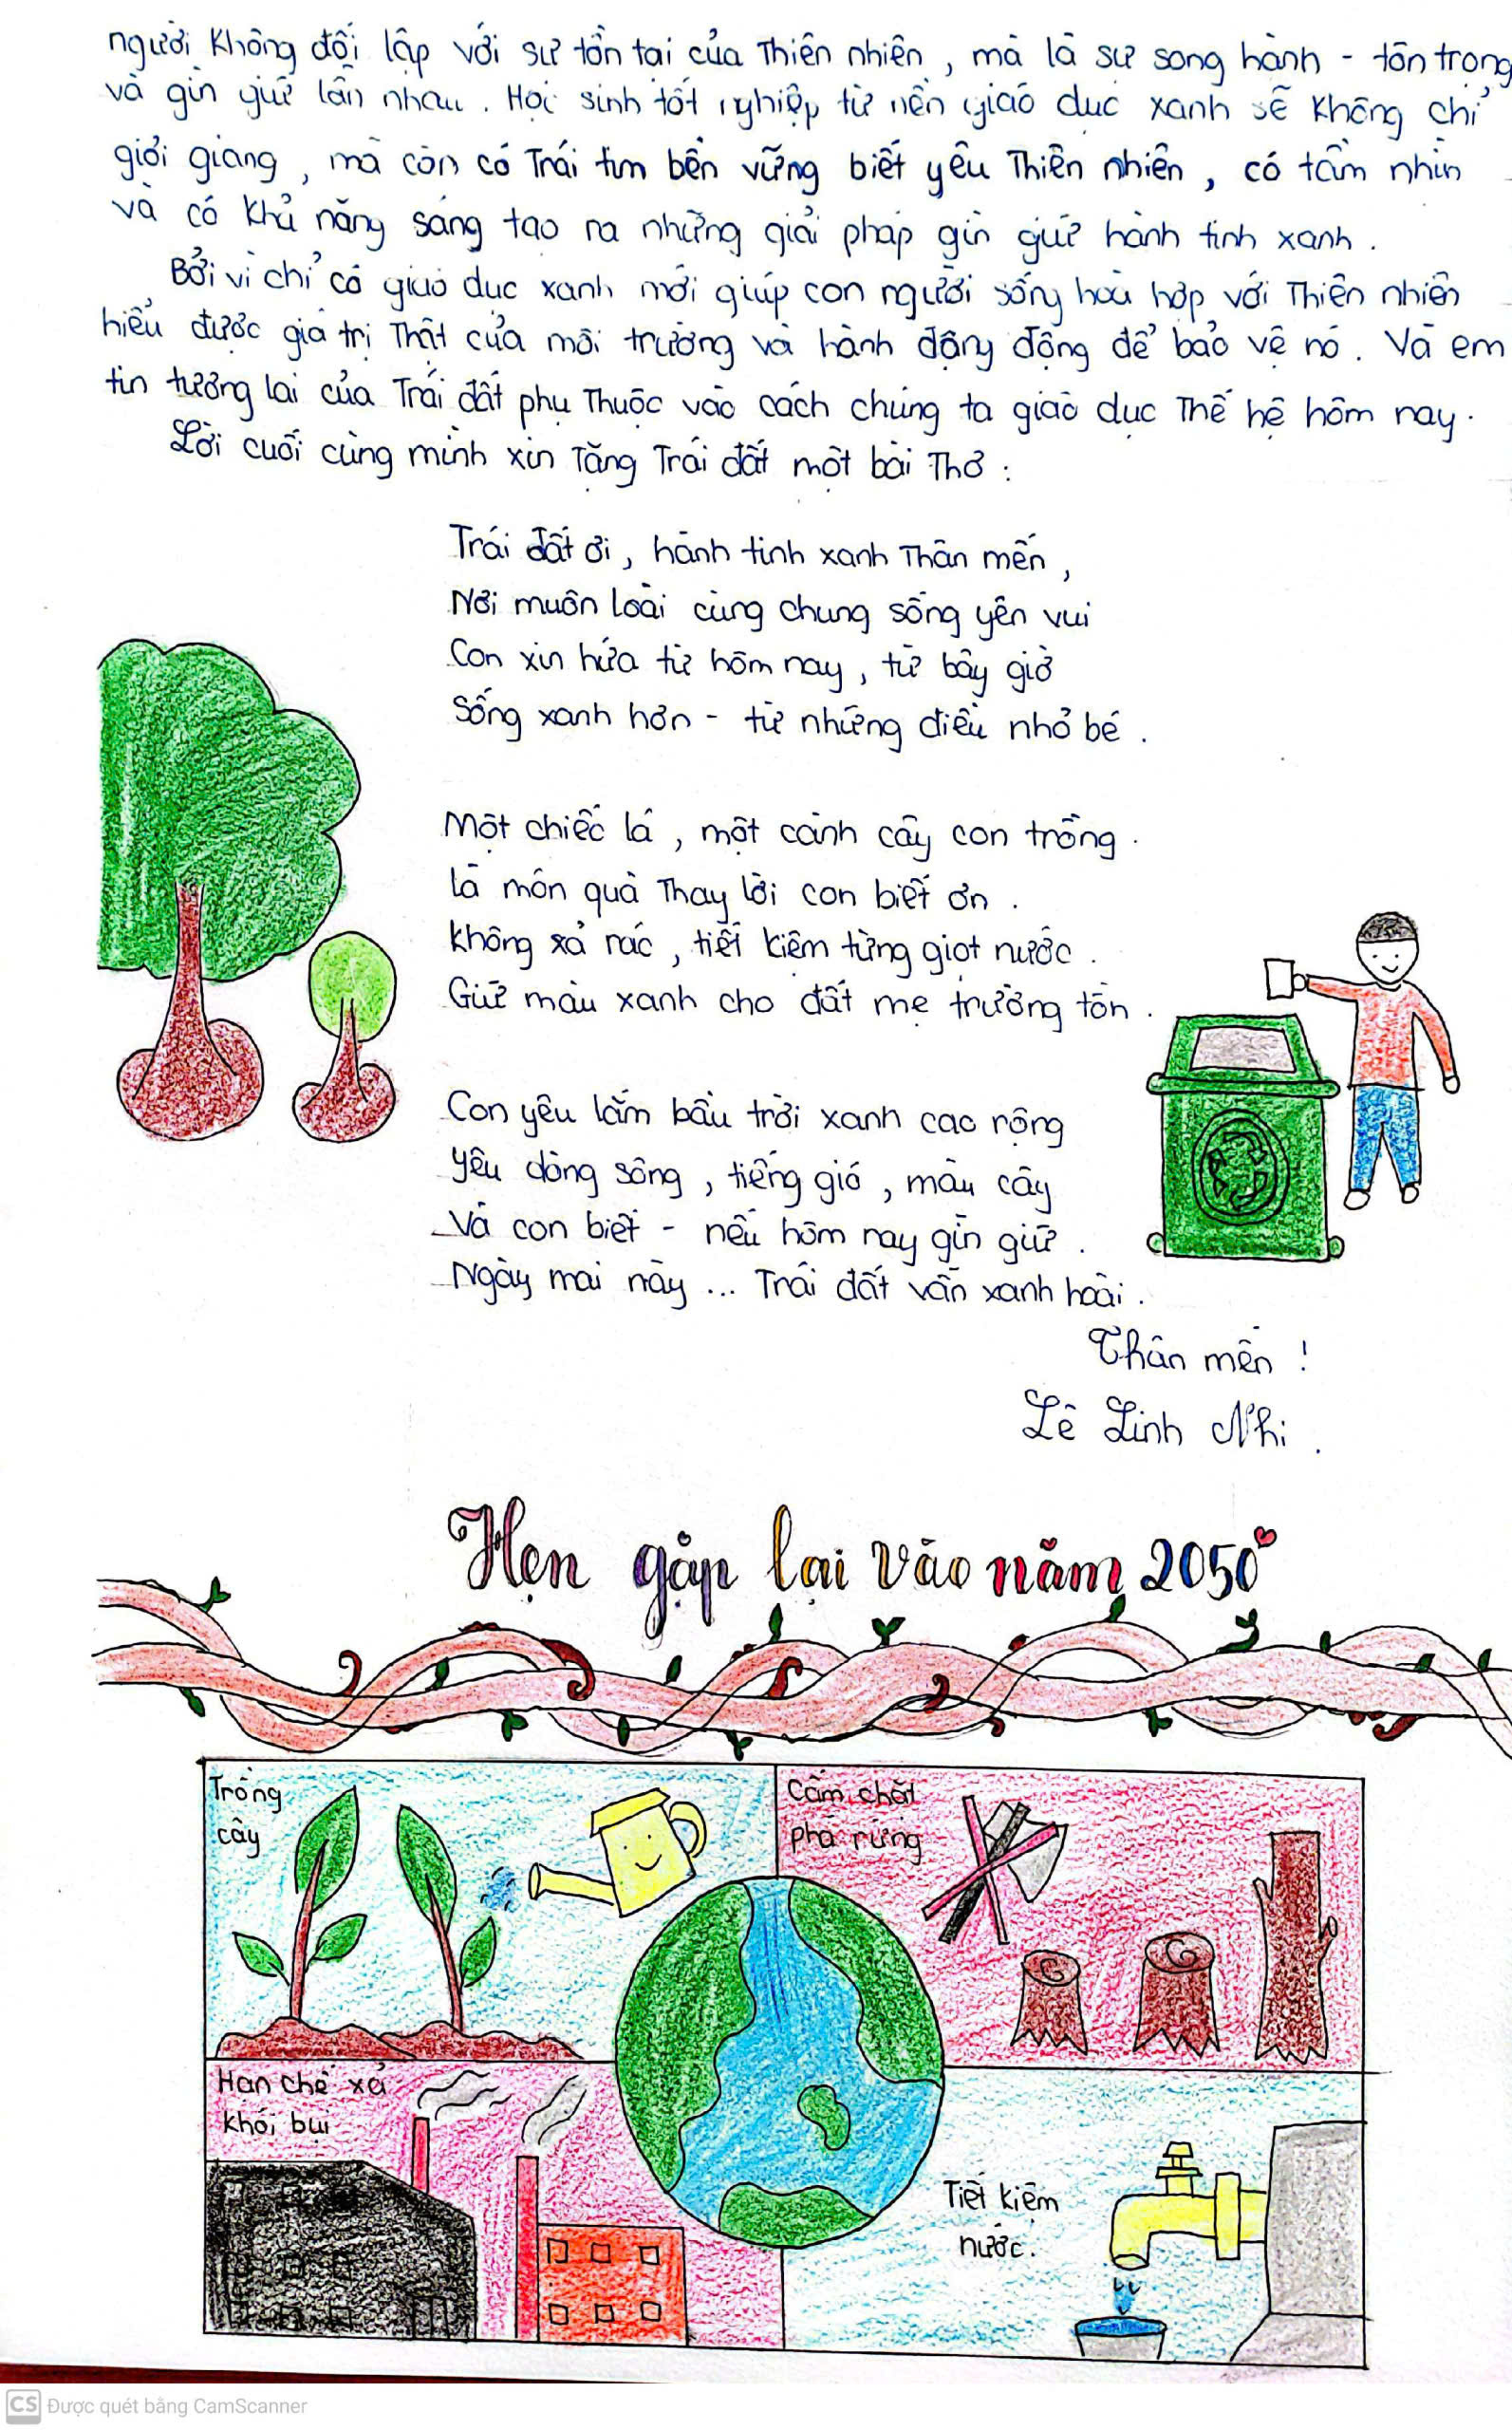 người không đối lập với sự tồn tại của Thiên nhiên, mà là sự song hành - tôn trọng
và gìn giữ lẫn nhau. Học sinh tốt nghiệp từ nền giáo dục xanh sẽ không chỉ
giỏi giang, mà còn có Trái tim bền vững biết yêu Thiên nhiên, có tầm nhìn
và có khả năng sáng tạo ra những giải pháp gìn giữ hành tinh xanh.
Bởi vì chỉ có giáo dục xanh mới giúp con người sống hoà hợp với Thiên nhiên
hiểu được giá trị Thật của môi trường và hành động động để bảo vệ nó. Và em
tin tương lai của Trái đất phụ Thuộc vào cách chúng ta giáo dục Thế hệ hôm nay.
Lời cuối cùng mình xin Tặng Trái đất một bài Thơ:
Trái đất ơi, hành tinh xanh Thân mến,
Nơi muôn loài cùng chung sống yên vui
Con xin hứa từ hôm nay, từ bây giờ
Sống xanh hơn - từ những điều nhỏ bé.
Một chiếc lá, một cành cây con trồng.
là món quà Thay lời con biết ơn.
không xả rác, tiết kiệm từng giọt nước.
Giữ màu xanh cho đất mẹ trường tồn.
Con yêu lắm bầu trời xanh cao rộng
yêu dòng sông, tiếng gió, màu cây
Và con biết - nếu hôm nay gìn giữ.
Ngày mai này... Trái đất vẫn xanh hoài.
Thân mến!
Lê Linh Nhi.
Hẹn gặp lại vào năm 2050
Trồng
cây
Cấm chặt
phá rừng
Hạn chế xả
khói bụi
Tiết kiệm
nước.
CS Được quét bằng CamScanner